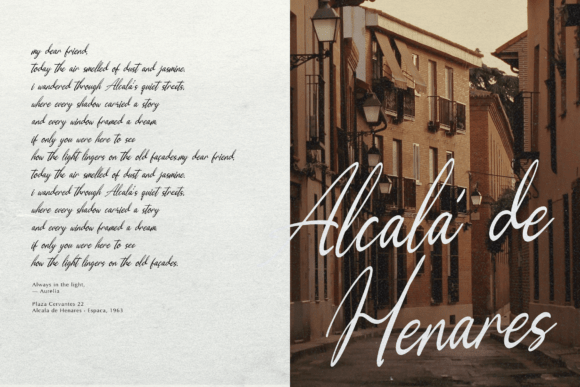 my dear friend,
today the air smelled of dust and jasmine.
i wandered through Alcalá's quiet streets,
where every shadow carried a story
and every window framed a dream.
if only you were here to see
how the light lingers on the old facades.my dear friend,
today the air smelled of dust and jasmine.
i wandered through Alcalá's quiet streets,
where every shadow carried a story
and every window framed a dream.
if only you were here to see
how the light lingers on the old facades.
Always in the light,
— Aurelia
Plaza Cervantes 22
Alcala de Henares - Espaca, 1963
Alcalá de
Henares